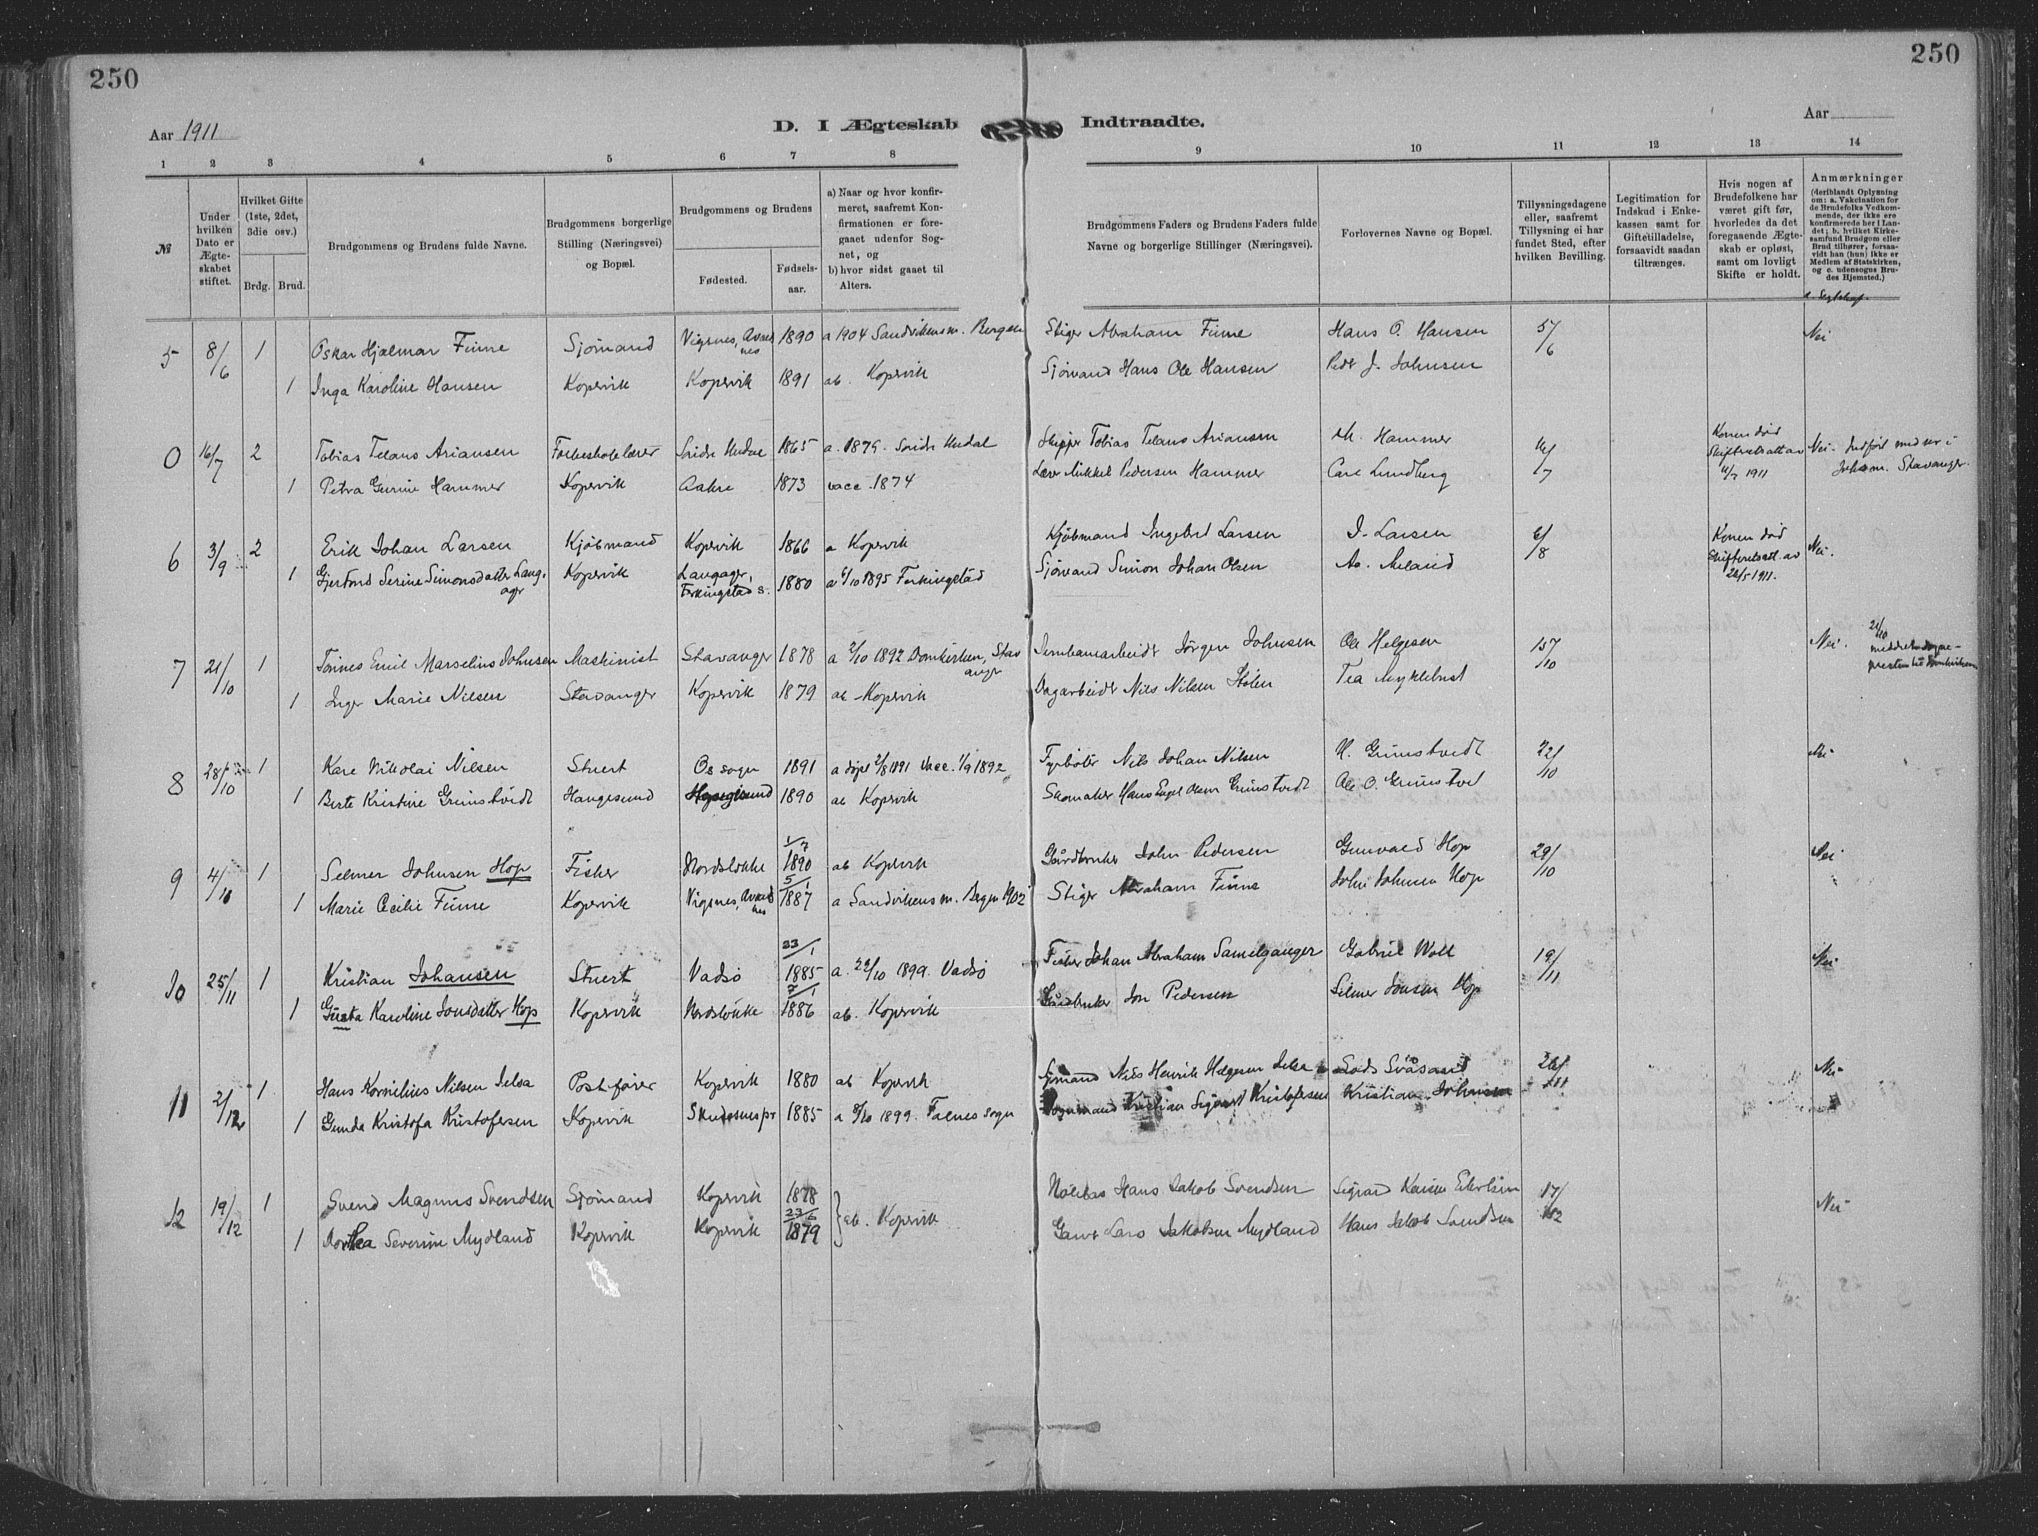 250
250
Aar 1911
D. I Ægteskab Indtraadte.
Aar
1 2 3 4 5 6 7 8 9 10 11 12 13 14
№
Under hvilken Dato er Ægteskabet stiftet.
Hvilket Gifte (1ste, 2det, 3die osv.)
Brdg. Brud.
Brudgommens og Brudens fulde Navne.
Brudgommens borgerlige Stilling (Næringsvei) og Bopæl.
Brudgommens og Brudens
Fødested.
Fødselsaar.
a) Naar og hvor konfirmeret, saafremt Konfirmationen er foregaaet udenfor Sognet, og
b) hvor sidst gaaet til Alters.
Brudgommens Faders og Brudens Faders fulde Navne og borgerlige Stillinger (Næringsvei).
Forlovernes Navne og Bopæl.
Tillysningsdagene eller, saafremt Tillysning ei har fundet Sted, efter hvilken Bevilling.
Legitimation for Indskud i Enkekassen samt for Giftetilladelse, forsaavidt saadan tiltrænges.
Hvis nogen af Brudefolkene har været gift før, hvorledes da det foregaaende Ægteskab er opløst, samt om lovligt Skifte er holdt.
Anmærkninger (deriblandt Oplysning om: a. Vakcination for de Brudefolks Vedkommende, der ikke ere konfirmerede her i Landet; b. hvilket Kirkesamfund Brudgom eller Brud tilhører, forsaavidt han (hun) ikke er Medlem af Statskirken, og c. udensogns Brudes Hjemsted.)
5 8/6 1 Oskar Hjalmar Finne Sjømand Vigsnes, Avaldsnes 1890 a 1904 Sandvikens m. Bergen Stiger Abraham Finne Hans O. Hansen 5/6 Nei
1 Inga Karoline Hansen Kopervik Kopervik 1891 ab. Kopervik Sjømand Hans Ole Hansen Peder J. Johnsen
0 16/7 2 Tobias Telans Ariansen 1865 a. 1879. Skipper Tobias Telans Ariansen M. Hammer /7 Konen død Skifteretsatt av 4/7 1911 Nei. Indført med nr i Joh.m. Stavanger.
1 Petra Gurine Hammer Kopervik Aakre 1873 vacc. 1874 Lærer Mikkel Pedersen Hammer Carl Lundberg
6 3/9 2 Erik Johan Larsen Kjøbmand Kopervik 1866 a Kopervik Kjøbmand Ingebret Larsen I. Larsen 6/8 Konen død Skifteretsatt av 26/5 1911. Nei.
1 Gjertrud Serine Simonsdatter Langager Kopervik Langager, Ferkingstad s. 1880 a 6/10 1895 Ferkingstad Sjømand Simon Johan Olsen
7 21/10 1 Tønnes Emil Marselius Johnsen Maskinist Stavanger 1878 a 2/10 1892 Domkirken, Stavanger Jernbanearbeider Jørgen Johnsen Ole Helgesen 15/10 Nei. 21/10
1 Inger Marie Nilsen Stavanger Kopervik 1879 ab Kopervik Dagarbeider Nils Nilsen Stølen Tea Myklebust
8 28/10 1 Kare Nikolai Nilsen Stuert Os sogn 1891 a døpt 2/8 1891 Vacc. 1/9 1892 Fyrbøter Nils Johan Nilsen H. Grimstvedt 22/10 Nei
1 Berte Kristine Grimstvedt Haugesund 1890 ab Kopervik Skomaker Hans Engel Olsen Grimstvedt Ole O. Grimstvedt
9 4/10 1 Selmer Johnsen Hop Fisker Nordstokke 1/7 1890 ab Kopervik Gårdbruker John Pedersen Gunvald Hop 29/10 Nei
1 Marie Cecilie Finne Kopervik Vigsnes, Avaldsnes 5/1 1887 a Sandvikens m. Bergen 1902 Stiger Abraham Finne John Johnsen Hop
10 25/11 1 Kristian Johansen Stuert Vadsø 23/1 1885 a. 22/10 1899. Vadsø Fisker Johan Abraham Samelganger Gabriel Wold 19/11 Nei
1 Gusta Karoline Jonsdatter Hop Kopervik Nordstokke 7/1 1886 ab. Kopervik Gårdbruker Jon Pedersen Selmer Jonsen Hop
11 2/12 1 Hans Kornelius Nilsen Jelsa Postfører Kopervik 1880 ab Kopervik Sjømand Nils Henrik Helgesen Jelsa Svåsand 26/11 Nei
1 Gunda Kristofa Kristofersen Kopervik Skudesnes pr 1885 a 8/10 1899. Falnes sogn Kristian Sigvard Kristofersen Kristian Johansen
12 19/12 1 Svend Magnus Svendsen Sjømand Kopervik 1878 ab. Kopervik Hans Jakob Svendsen 17/12 Nei
1 Dorthea Severine Mydland Kopervik Kopervik 23/6 1879 Garver Lars Jakobsen Mydland Hans Jakob Svendsen